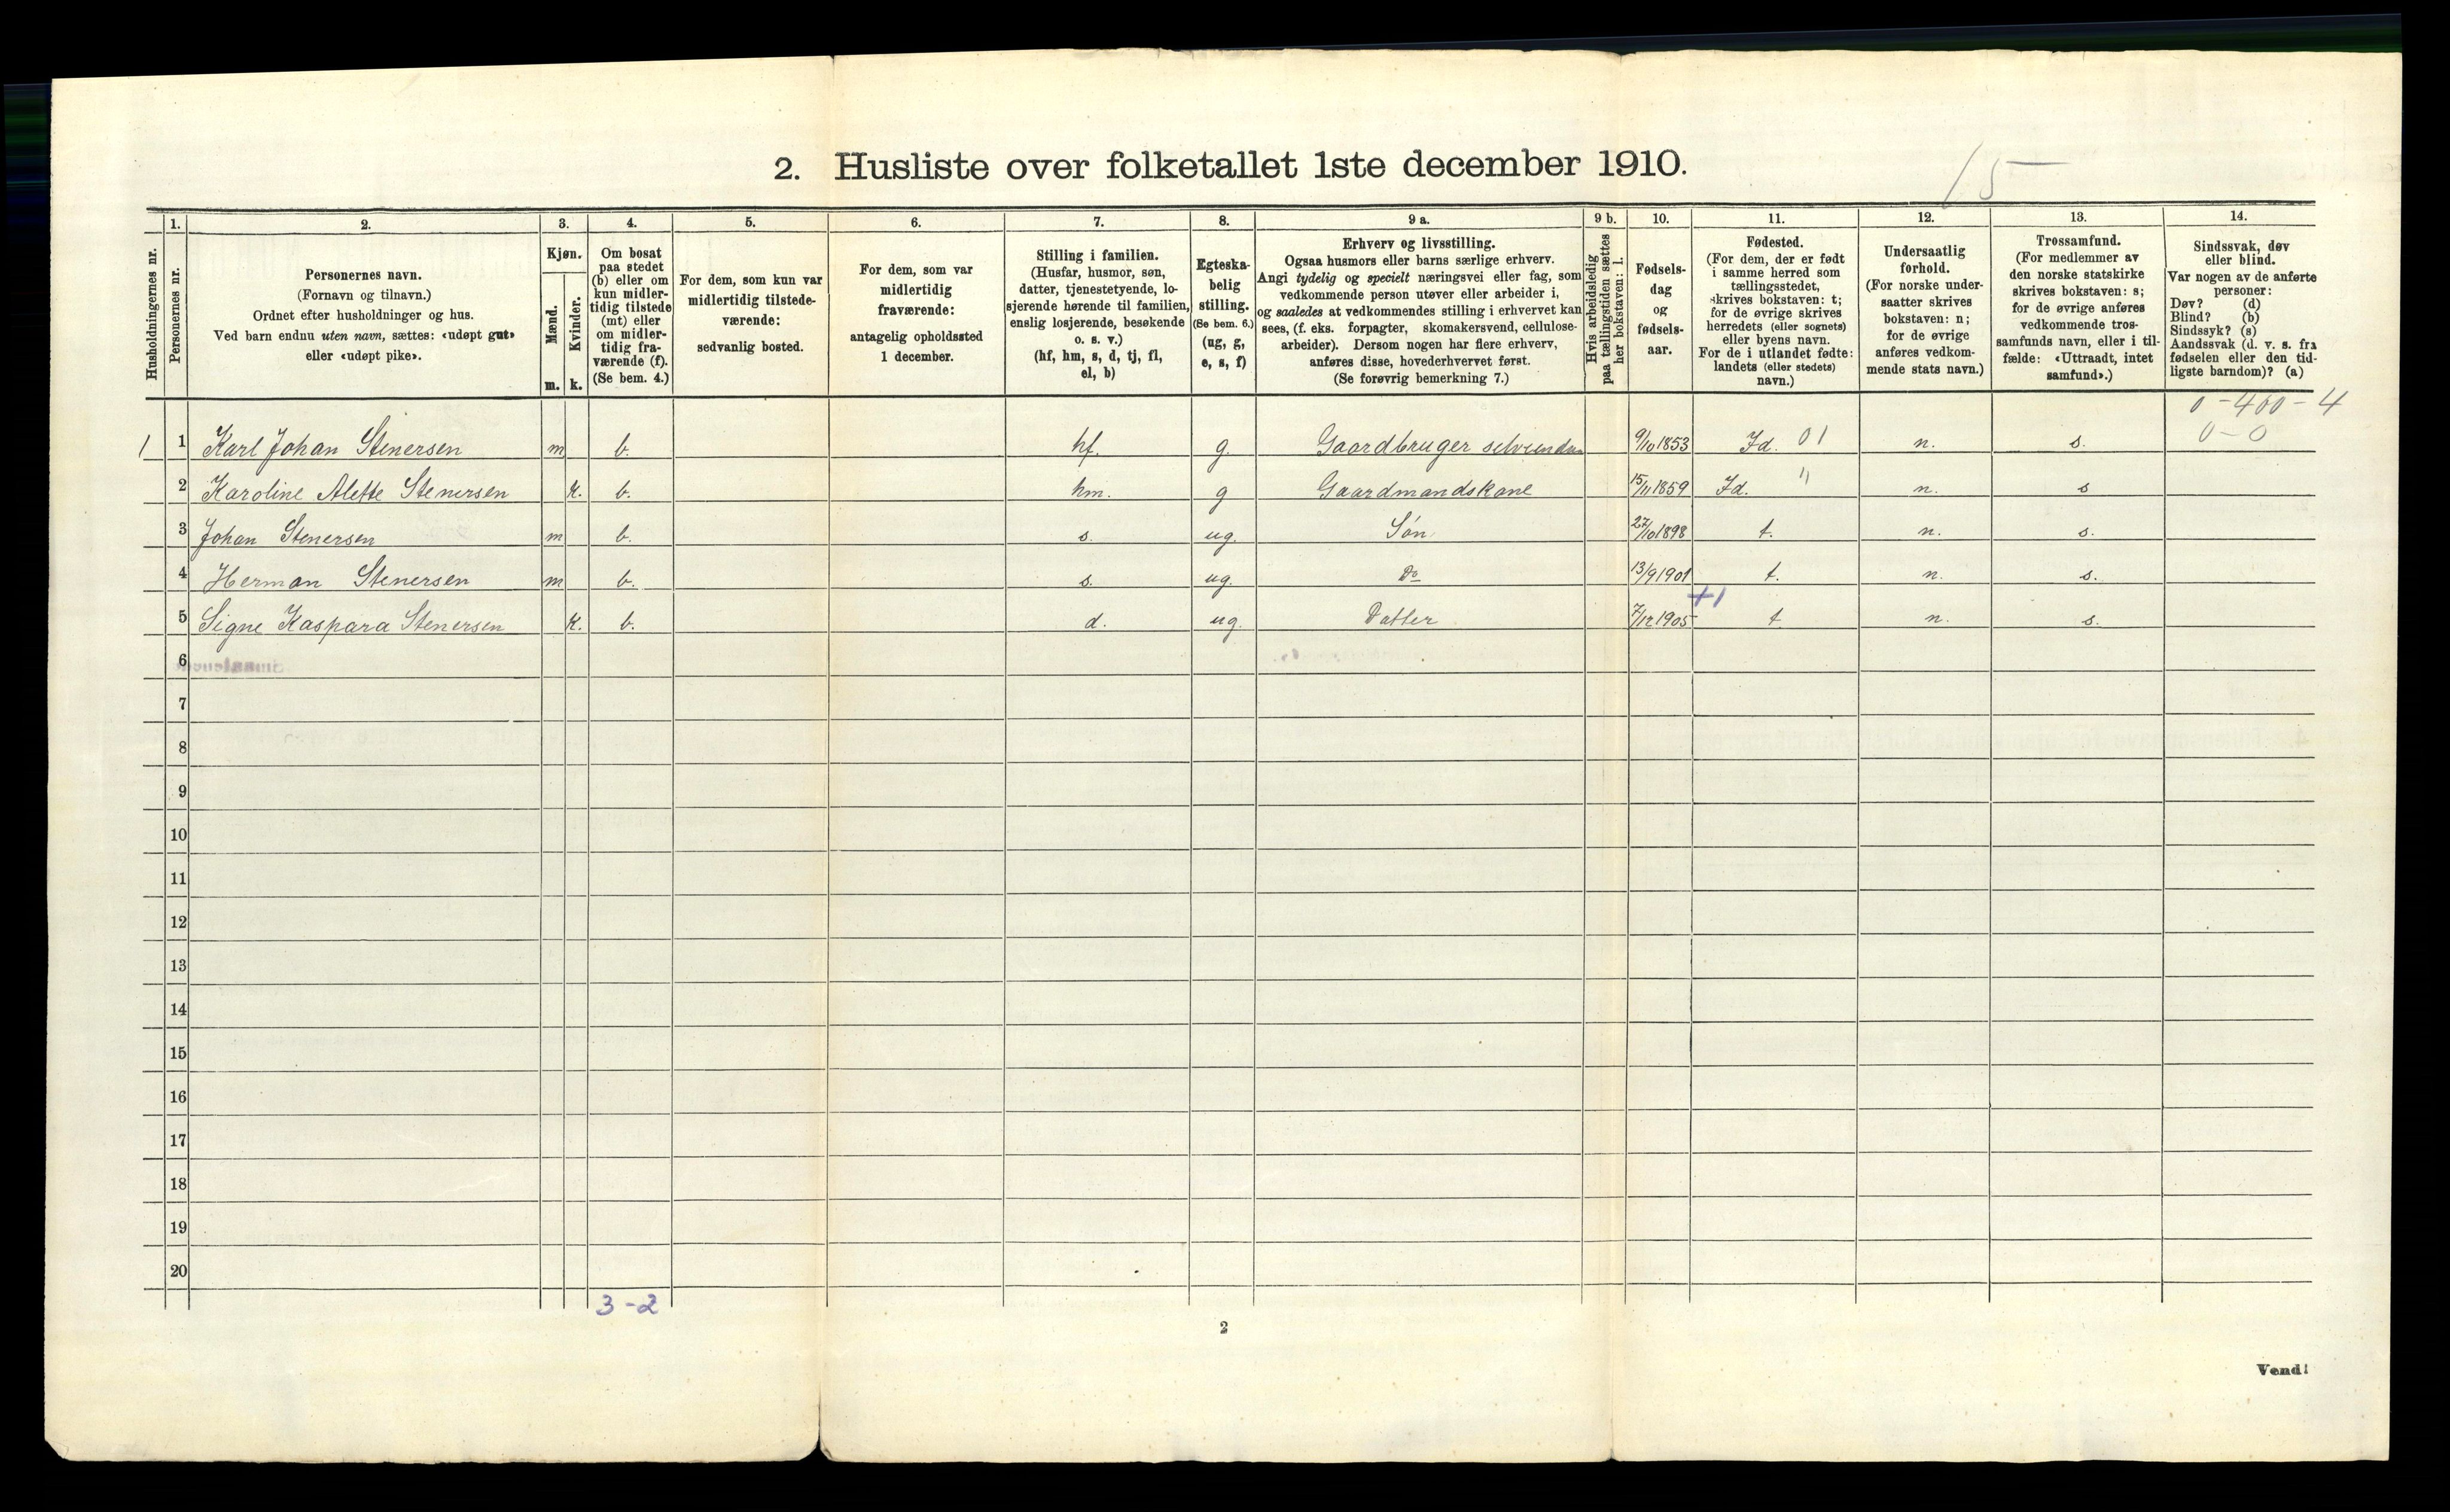 15
2. Husliste over folketallet 1ste december 1910.
Husholdningernes nr.
1.
Personernes nr.
2.
Personernes navn.
(Fornavn og tilnavn.)
Ordnet efter husholdninger og hus.
Ved barn endnu uten navn, sættes: «udøpt gut»
eller «udøpt pike».
3.
Kjøn.
Mænd.
m.
Kvinder.
k.
4.
Om bosat
paa stedet
(b) eller om
kun midler-
tidig tilstede
(mt) eller
om midler-
tidig fra-
værende (f).
(Se bem. 4.)
5.
For dem, som kun var
midlertidig tilstede-
værende:
sedvanlig bosted.
6.
For dem, som var
midlertidig
fraværende:
antagelig opholdssted
1 december.
7.
Stilling i familien.
(Husfar, husmor, søn,
datter, tjenestetyende, lo-
sjerende hørende til familien,
enslig losjerende, besøkende
o. s. v.)
(hf, hm, s, d, tj, fl,
el, b)
8.
Egteska-
belig
stilling.
(Se bem. 6.)
(ug, g,
e, s, f)
9 a.
Erhverv og livsstilling.
Ogsaa husmors eller barns særlige erhverv.
Angi tydelig og specielt næringsvei eller fag, som
vedkommende person utøver eller arbeider i,
og saaledes at vedkommendes stilling i erhvervet kan
sees, (f. eks. forpagter, skomakersvend, cellulose-
arbeider). Dersom nogen har flere erhverv,
anføres disse, hovederhvervet først.
(Se forøvrig bemerkning 7.)
9 b.
Hvis arbeidsledig
paa tællingstiden sættes
her bokstaven: l.
10.
Fødsels-
dag
og
fødsels-
aar.
11.
Fødested.
(For dem, der er født
i samme herred som
tællingsstedet,
skrives bokstaven: t;
for de øvrige skrives
herredets (eller sognets)
eller byens navn.
For de i utlandet fødte:
landets (eller stedets)
navn.)
12.
Undersaatlig
forhold.
(For norske under-
saatter skrives
bokstaven: n;
for de øvrige
anføres vedkom-
mende stats navn.)
13.
Trossamfund.
(For medlemmer av
den norske statskirke
skrives bokstaven: s;
for de øvrige anføres
vedkommende tros-
samfunds navn, eller i til-
fælde: «Uttraadt, intet
samfund».)
14.
Sindssvak, døv
eller blind.
Var nogen av de anførte
personer:
Døv? (d)
Blind? (b)
Sindssyk? (s)
Aandssvak (d. v. s. fra
fødselen eller den tid-
ligste barndom)? (a)
0-400-4
0-0
1 1 Karl Johan Stenersen m b. hf. g. Gaardbruger selveiendom 9/10 1853 Id. 01 n. s.
2 Karoline Alette Stenersen k. b. hm. g Gaardmandskone 15/11 1859 Id. " n. s
3 Johan Stenersen m b. s. ug. Søn 27/10 1898 t. n. s.
4 Herman Stenersen m b. s. ug. Do 13/9 1901 t. n. s.
+1
5 Signe Kaspara Stenersen k. b. d. ug. Datter 7/12 1905 t n. s.
6
7
8
9
10
11
12
13
14
15
16
17
18
19
20
3-2
2
Vend!